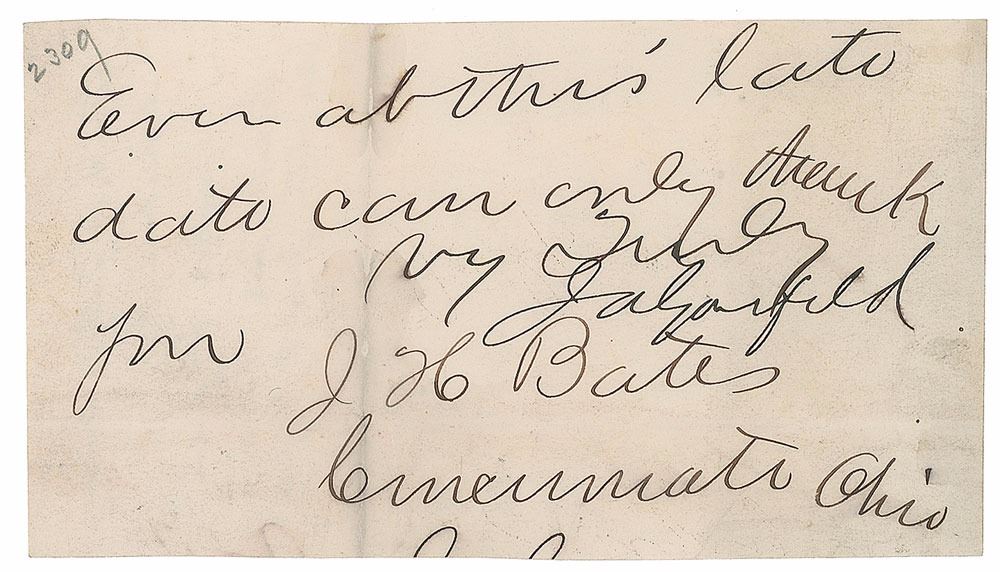 2309
Even at this late
date can only thank
you
Vy Truly
JAGarfield
J H Bates
Cincinnati Ohio